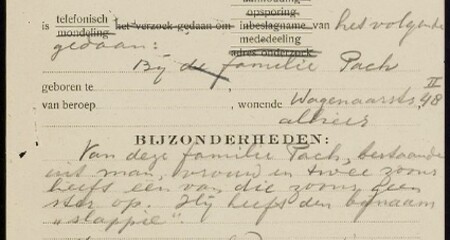 aanhouding
opsporing
is telefonisch het verzoek gedaan om inbeslagname van het volgende
mondeling mededeeling
adres onderzoek
gedaan:
Bij de familie Pach
geboren te
van beroep , wonende Wagenaarstr. 48 II
alhier
BIJZONDERHEDEN:
Van deze familie Pach, bestaande
uit man, vrouw en twee zoons
heeft één van die zoons geen
ster op. Hij heeft den bijnaam
"slappie".